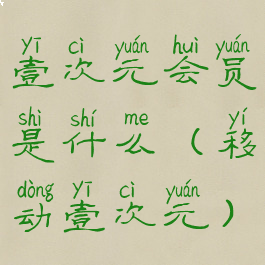 yī cì yuán huì yuán
壹次元会员
shì shí me yí
是什么（移
dòng yī cì yuán
动壹次元）